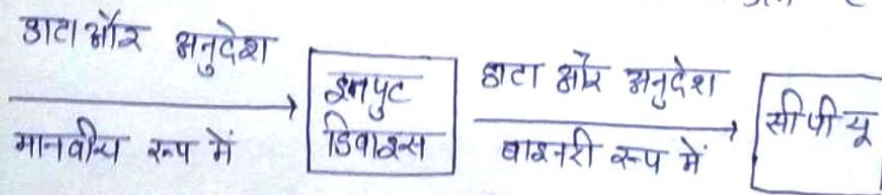 डाटा और अनुदेश
मानवीय रूप में
इनपुट
डिवाइस
डाटा और अनुदेश
बाइनरी रूप में
सीपीयू